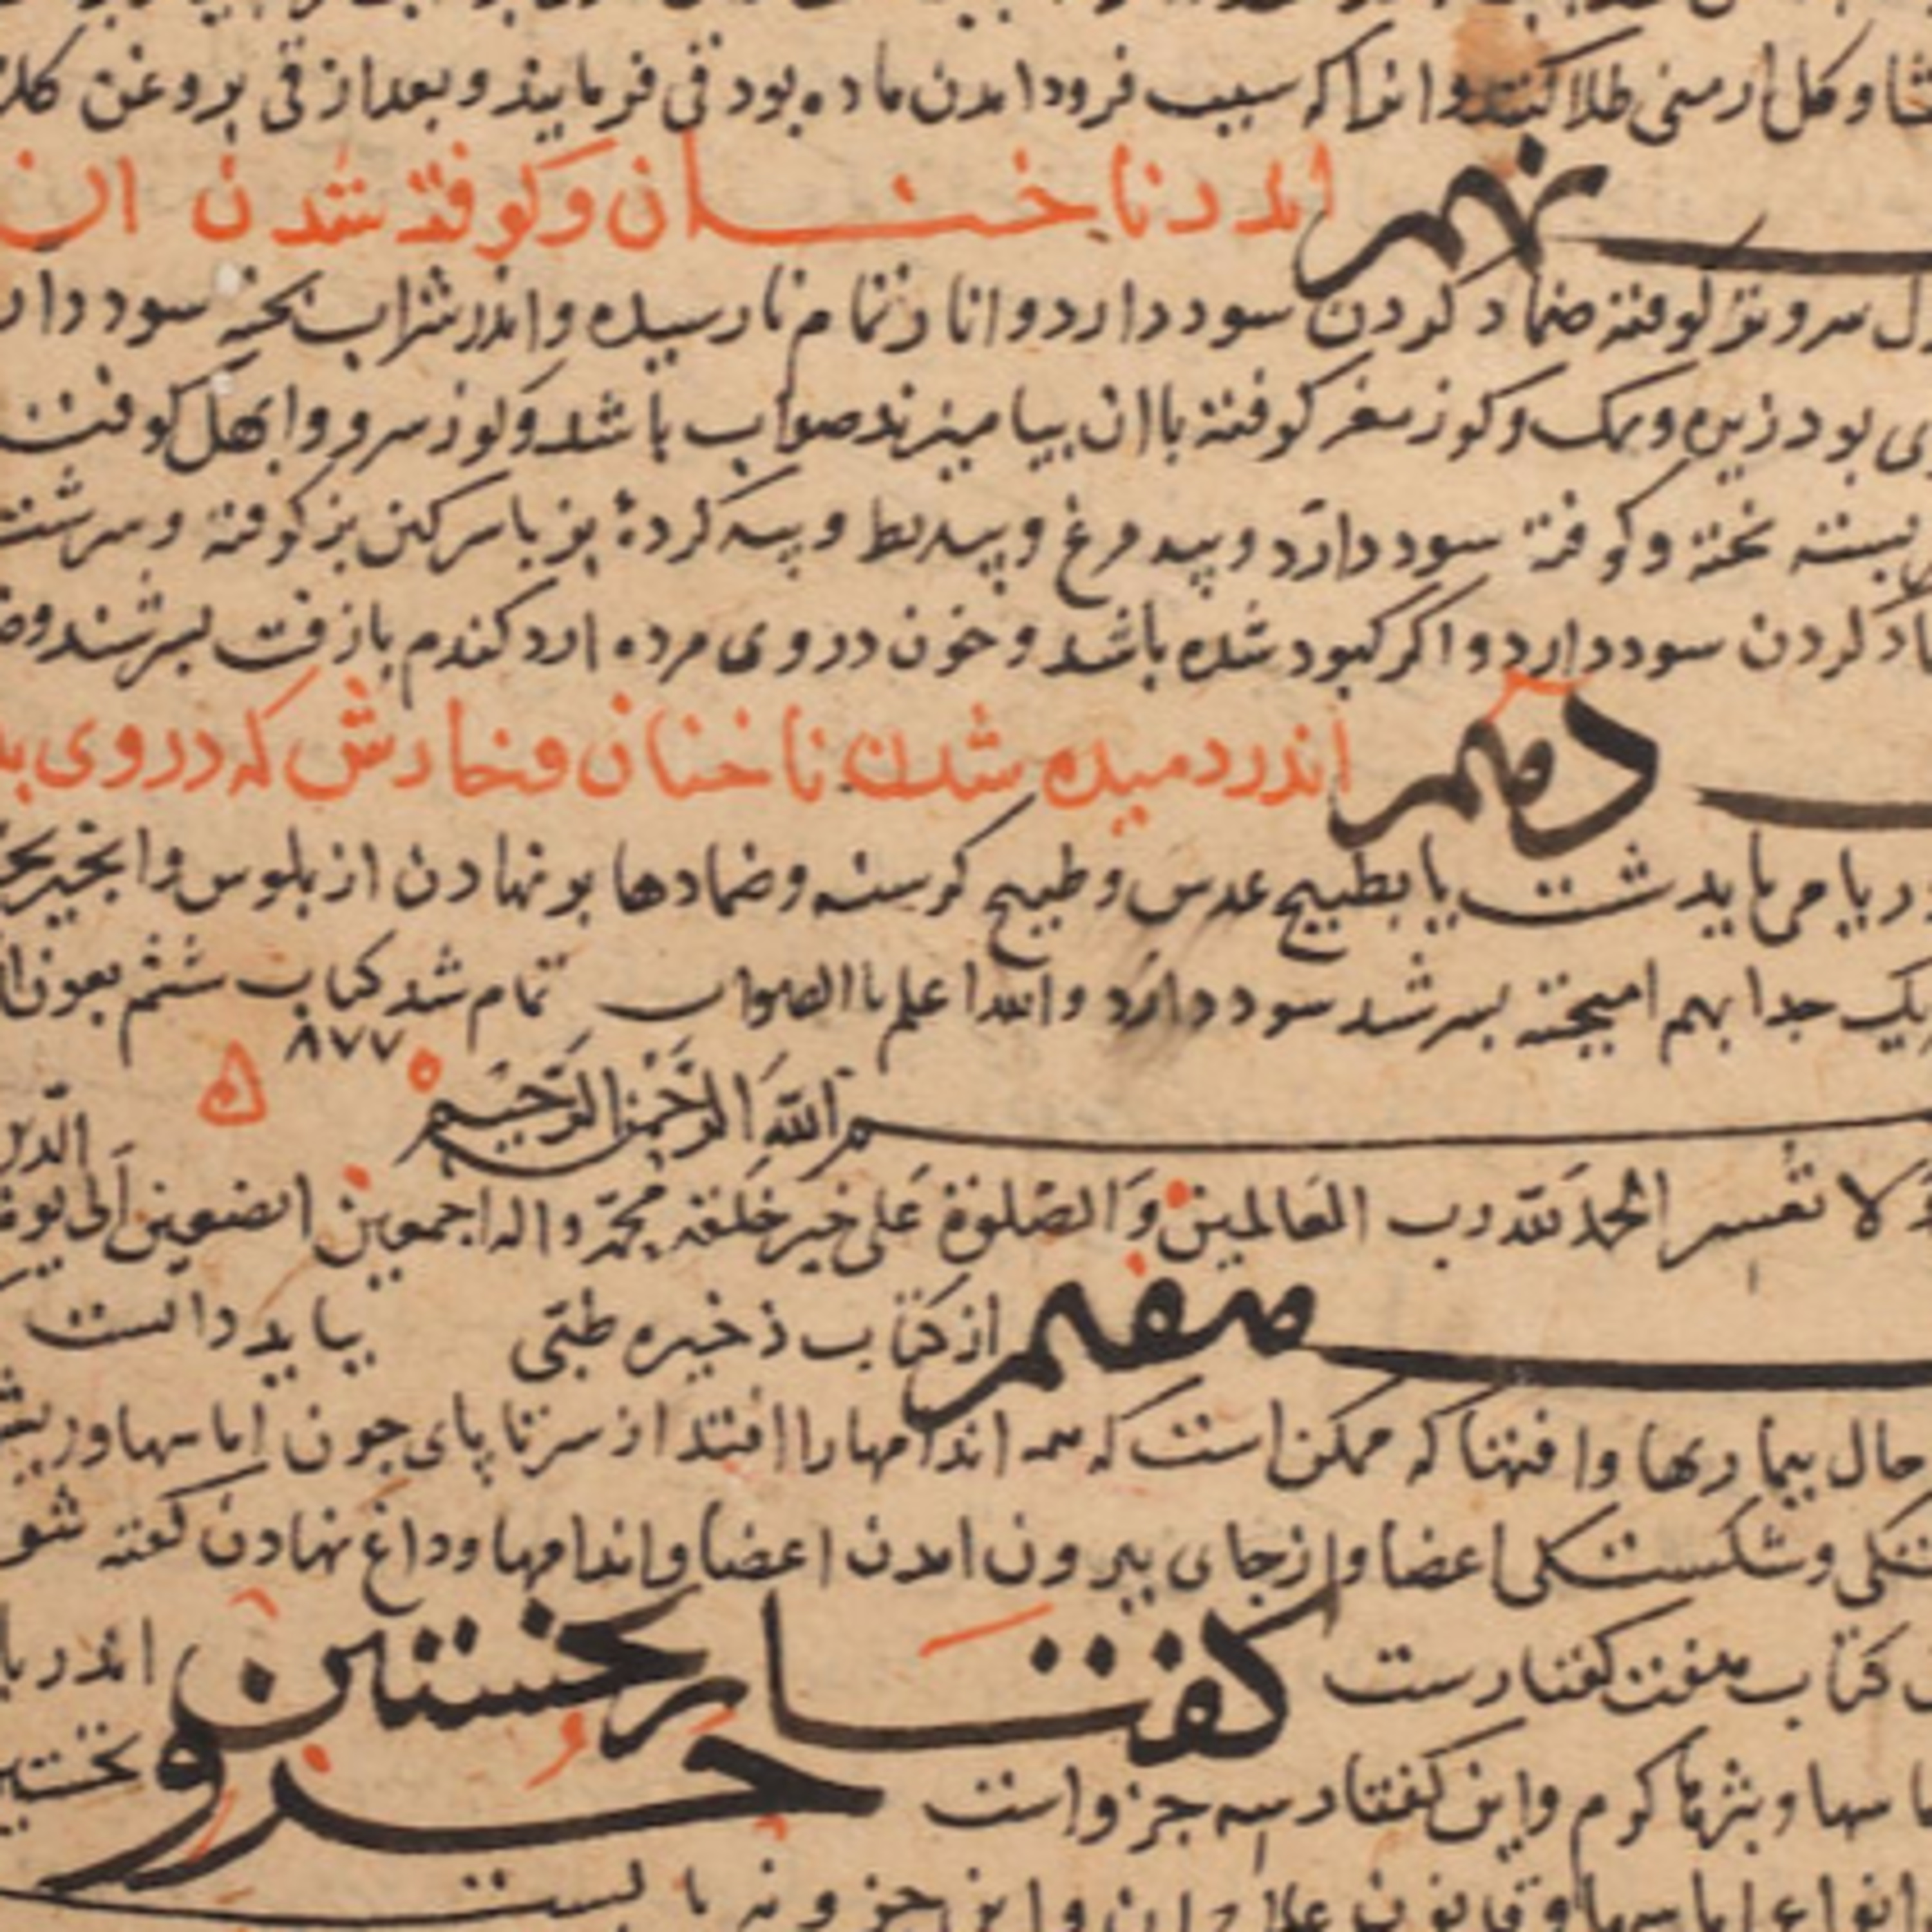 و کل ارمنی طلا کنند و انرا که سبب فرود امدن ماده بود قی فرمایند و بعد از قی بروغن کل
نهم اندر ناخنان و کوفته شدن ان
سرو تر کوفته ضماد کردن سود دارد و انار تمام نارسیده و اندر شراب پخته سود دارد
بود زیره و نمک و کوز مغز کوفته با ان بیامیزند صواب باشد و کوز سرو و ابهل کوفته
بسته پخته و کوفته سود دارد و پیه مرغ و پیه بط و پیه کردهٔ بز با سرکین بز کوفته و سرشته
کردن سود دارد و اکر کبود شده باشد و خون در وی مرده ارد کندم با زفت بسرشند
دهم اندر دمیده شدن ناخنان و خارش که در وی
دریا می باید شست یا بطبیخ عدس و طبیخ کرسنه و ضمادها بر نهادن از بلوس و انجیر
یک جدا بهم امیخته بسرشد سود دارد والله اعلم باالصواب تمام شد کتاب ششم بعون
۸۷۷
بسم الله الرحمن الرحیم
ولا تعسر الحمد لله رب العالمین والصلوة علی خیر خلقه محمد واله اجمعین
هفتم از کتاب ذخیره طبی بباید دانست
حال بیماریها و افتها که ممکن است که همه اندامها را افتد از سر تا پای چون اماسها و
و شکستکی اعضا و از جای بیرون امدن اعضا و اندامها و داغ نهادن کفته شو
کتاب هفت کفتارست کفتار نخستین اندر
اماسها و بثرها کرم و این کفتار سه جزو است جزو نخستین
انواع اماسها و قانون علاج ان و این جزو نه بابست